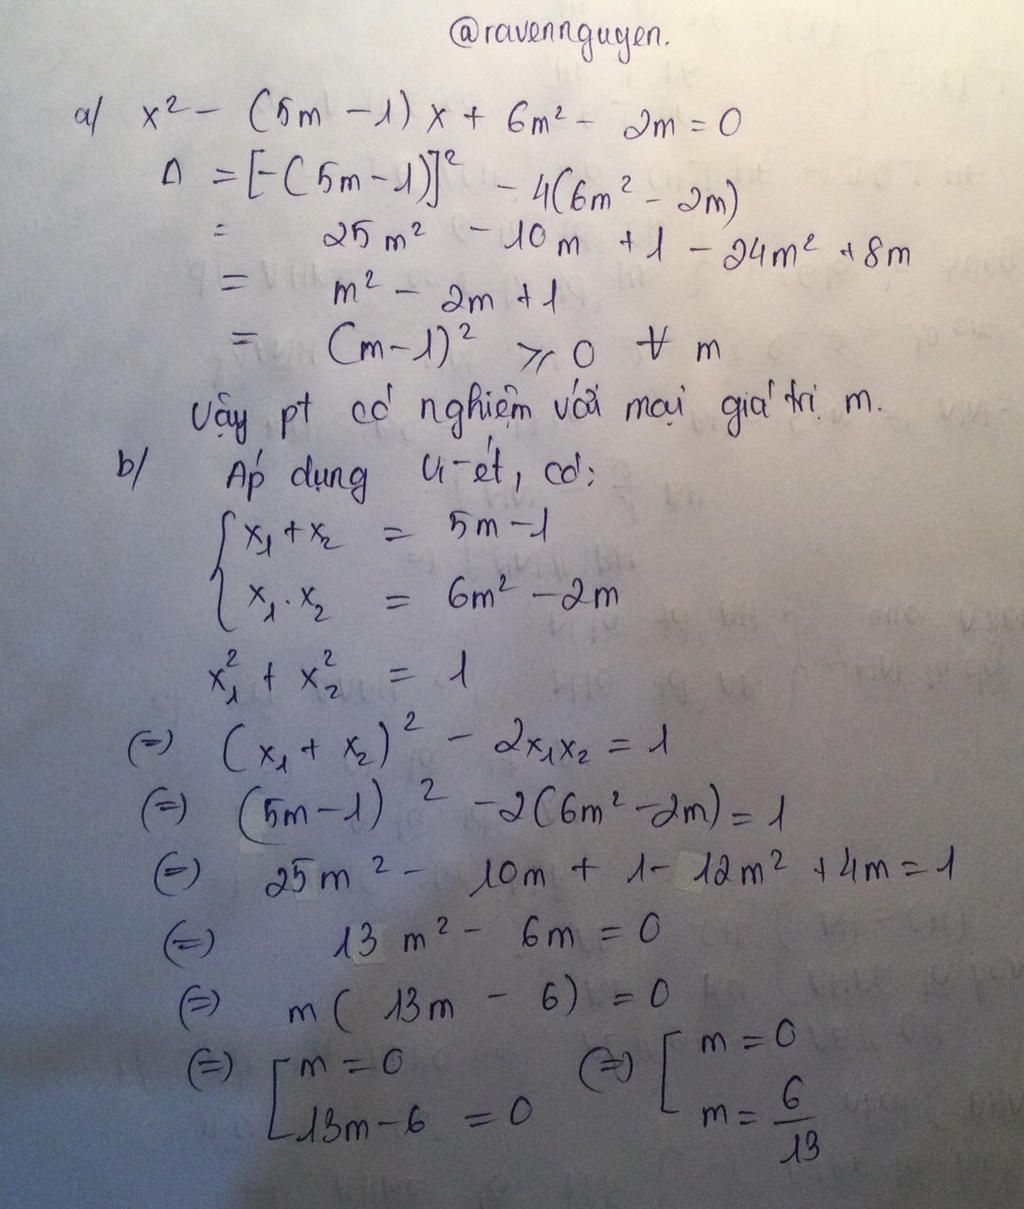 @ravennguyen.
a/ x² - (5m - 1) x + 6m² - 2m = 0
Δ = [-(5m - 1)]² - 4(6m² - 2m)
= 25m² - 10m + 1 - 24m² + 8m
= m² - 2m + 1
= (m - 1)² ⩾ 0 ∀ m
Vậy pt có nghiệm với mọi giá trị m.
b/ Áp dụng Vi-ét, có:
x₁ + x₂ = 5m - 1
x₁ . x₂ = 6m² - 2m
x₁² + x₂² = 1
(=) (x₁ + x₂)² - 2x₁x₂ = 1
(=) (5m - 1)² - 2(6m² - 2m) = 1
(=) 25m² - 10m + 1 - 12m² + 4m = 1
(=) 13m² - 6m = 0
(=) m( 13m - 6) = 0
(=) [ m = 0 (=) [ m = 0
13m - 6 = 0 m = 6/13